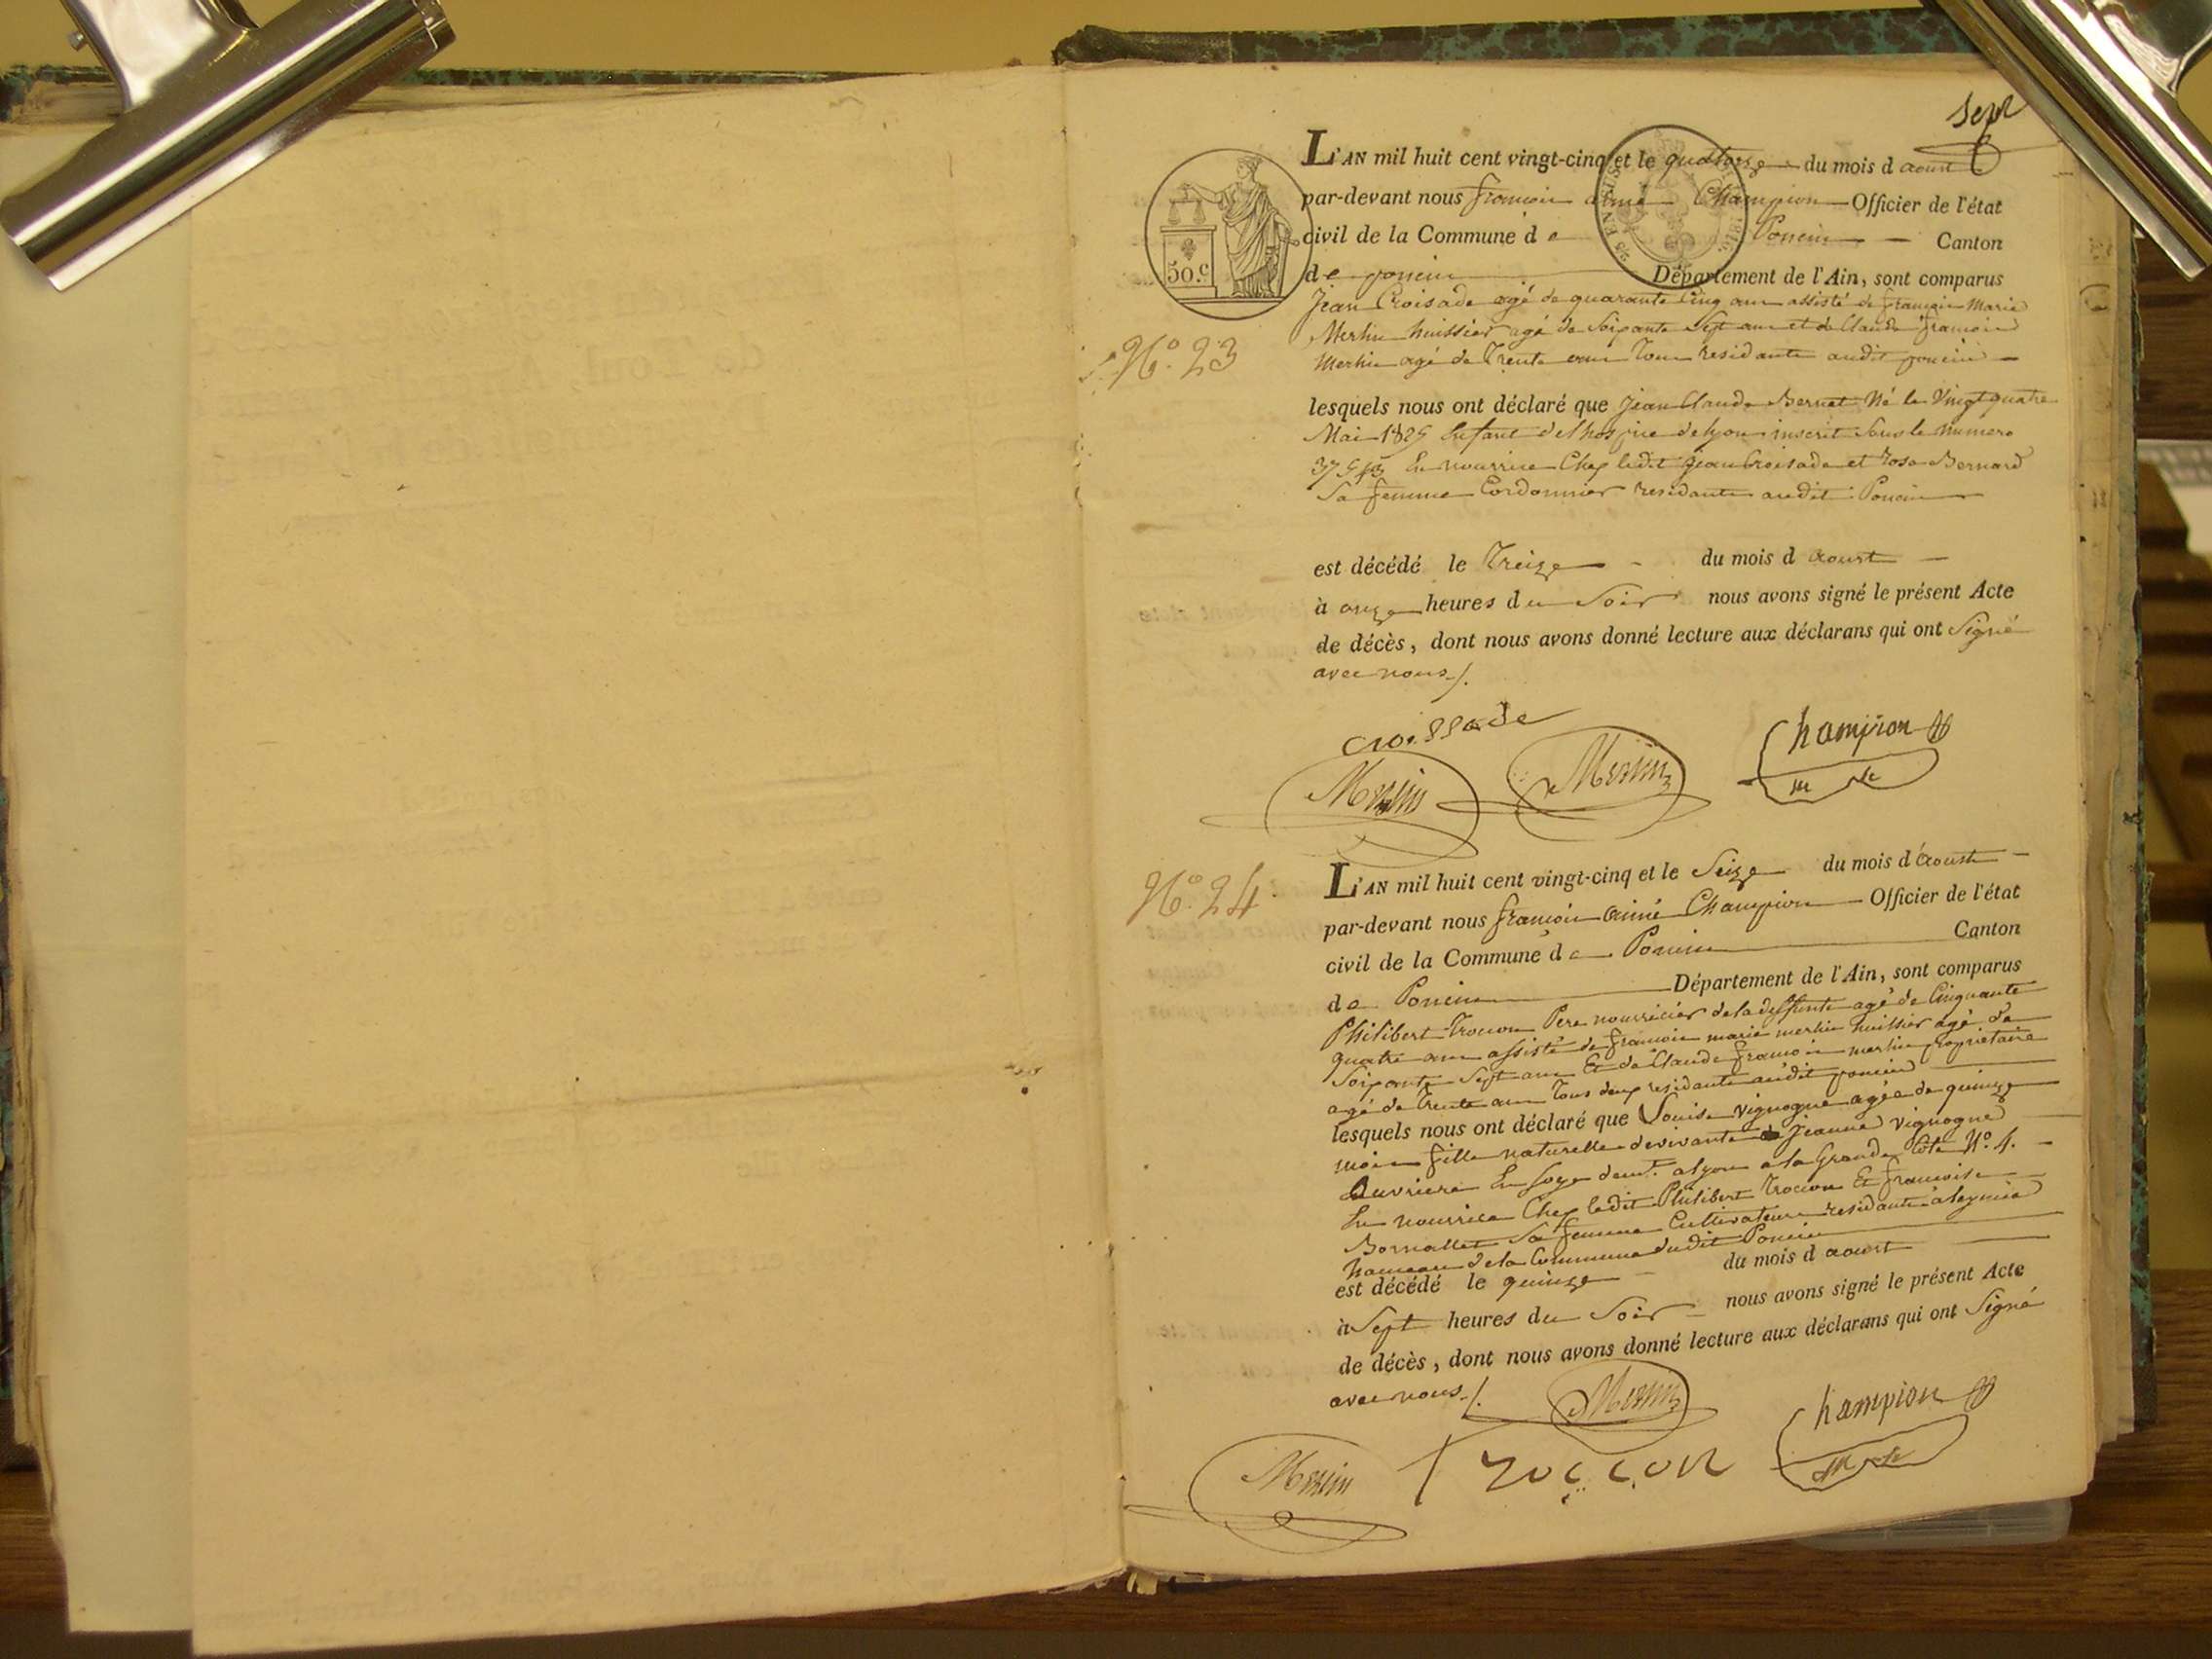 Sept
L'AN mil huit cent vingt-cinq et le quatorze du mois d aoust
par-devant nous françois aimé Champion Officier de l'état
civil de la Commune d e Poncin Canton
de poncin Département de l'Ain, sont comparus
50.c
Jean Croisade agé de quarante Cinq ans assisté de françois Marie
Merlin huissier agé de Soixante Sept ans et de Claude françois
N.o 23
Merlin agé de Trente ans Tous residants audit poncin
lesquels nous ont déclaré que Jean Claude Bernet Né le Vingt quatre
Mai 1825 Enfant de l'hospice de lyon inscrit Sous le numero
En nourrice Chez ledit Jean Croisade et Rose Bernard
Sa femme Cordonnier residants audit Poncin
est décédé le Treize du mois d aoust
à onze heures du Soir nous avons signé le présent Acte
de décès, dont nous avons donné lecture aux déclarans qui ont Signé
avec nous /.
croissade
Merlin Merlin Champion
N.o 24
L'AN mil huit cent vingt-cinq et le Seize du mois d'aoust
par-devant nous françois aimé Champion Officier de l'état
civil de la Commune d e Poncin Canton
de Poncin Département de l'Ain, sont comparus
Philibert Trocon Pere nourricier de la deffunte agé de Cinquante
quatre ans assisté de françois marie merlin huissier agé de
Soixante Sept ans Et de Claude françois merlin propriétaire
agé de Trente ans Tous deux residants audit poncin
lesquels nous ont déclaré que Louise vignogne agée de quinze
mois fille naturelle de vivante Jeanne vignogne
Ouvriere En soye demt. a lyon a la Grande Côte N.o 4.
En nourrice Chez ledit Philibert Trocon Et françoise
Bornallet Sa femme Cultivateurs residants a leymiat
hameau de la Commune dudit Poncin
est décédé le quinze du mois d aoust
à Sept heures du Soir nous avons signé le présent Acte
de décès, dont nous avons donné lecture aux déclarans qui ont Signé
avec nous /. Merlin
Merlin Troccon Champion